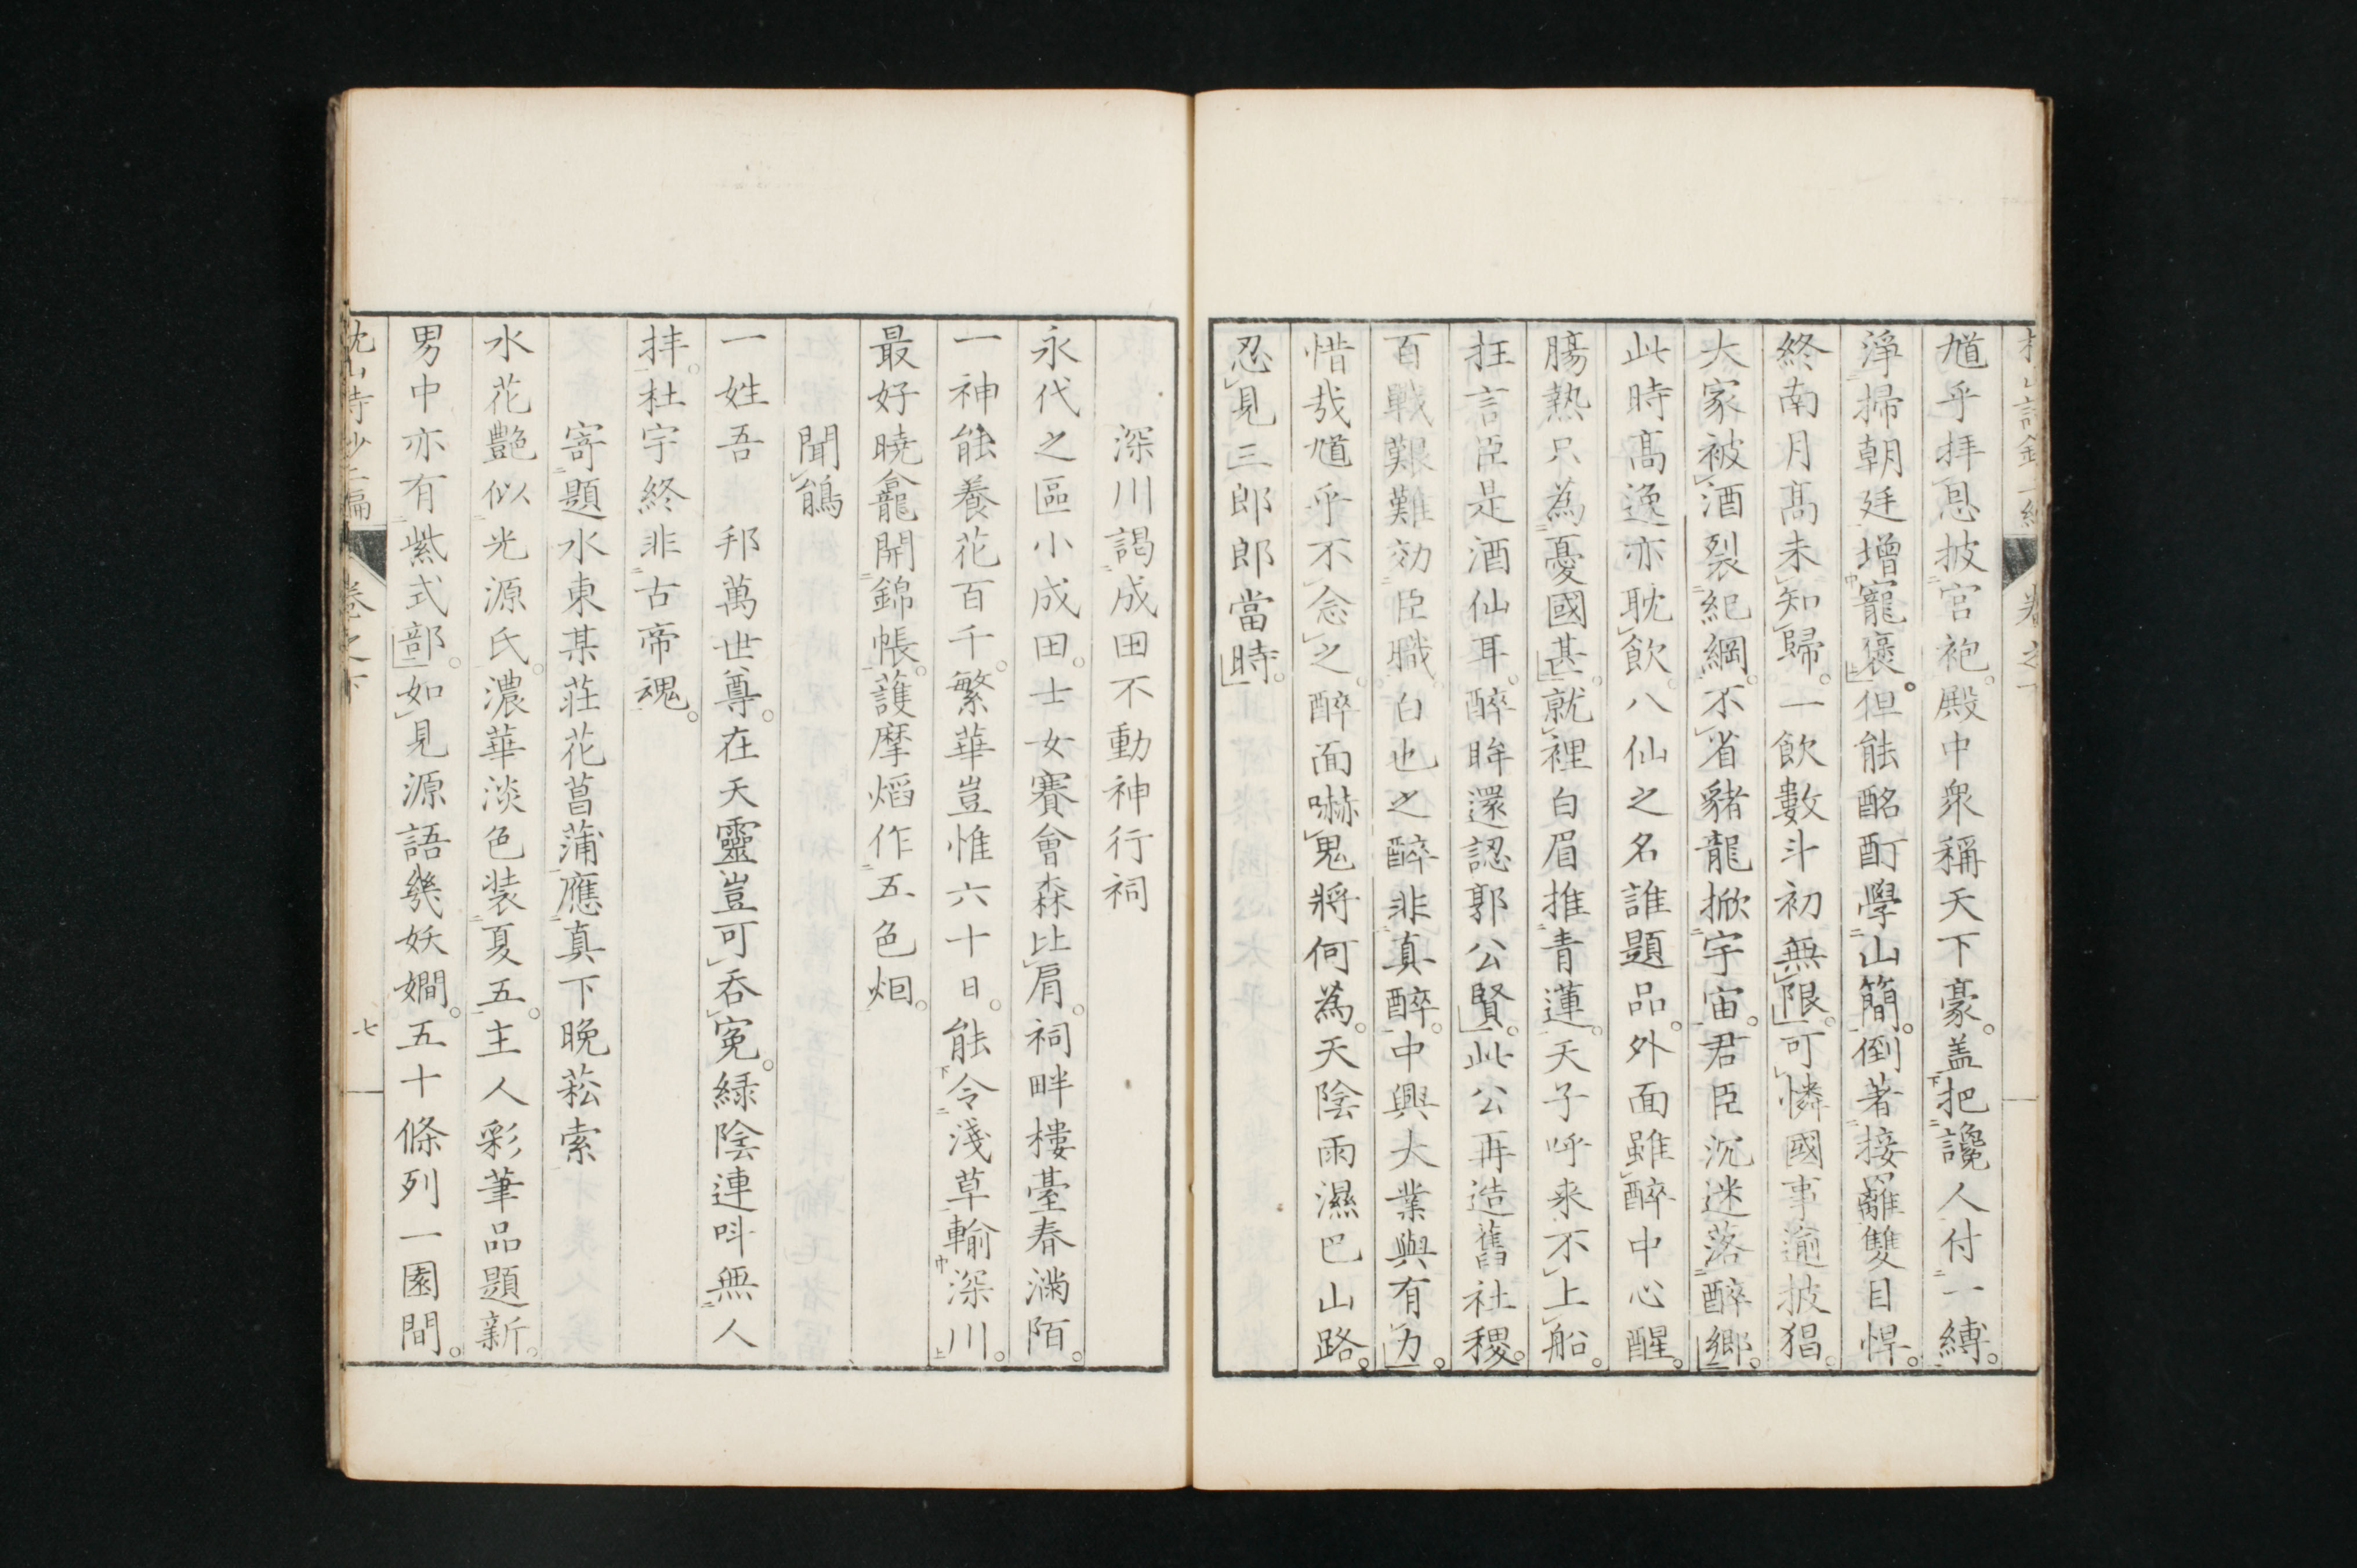 馗乎拝恩披宮袍。殿中衆稱天下豪。盖把讒人付一縛。
淨掃朝廷增寵褒。但能酩酊學山簡。倒著接䍦雙目悍。
終南月髙未知歸。一飲數斗初無限。可憐國事逾披猖。
大家被酒裂紀綱。不省豬龍掀宇宙。君臣沉迷落醉郷。
此時髙逸亦耽飲。八仙之名誰題品。外面雖醉中心醒。
膓熱只為憂國甚。就裡白眉推青蓮。天子呼来不上船。
狂言臣是酒仙耳。醉眸還認郭公賢。此公再造舊社稷。
百戰艱難効臣職。白也之醉非真醉。中興大業與有力。
惜哉馗乎不念之。醉面嚇鬼將何為。天陰雨濕巴山路。
忍見三郎郎當時。
深川謁成田不動神行祠
永代之區小成田。士女賽會森比肩。祠畔樓臺春滿陌。
一神能養花百千。繁華豈惟六十日。能令淺草輸深川。
最好曉龕開錦帳。護摩熖作五色烟。
聞鵑
一姓吾　邦萬世尊。在天靈豈可呑寃。緑陰連呌無人
拝。杜宇終非古帝魂。
寄題水東某荘花菖蒲應真下晩菘索
水花艶似光源氏。濃華淡色装夏五。主人彩筆品題新。
男中亦有紫式部。如見源語幾妖嫺。五十條列一園間。
卷之下
七